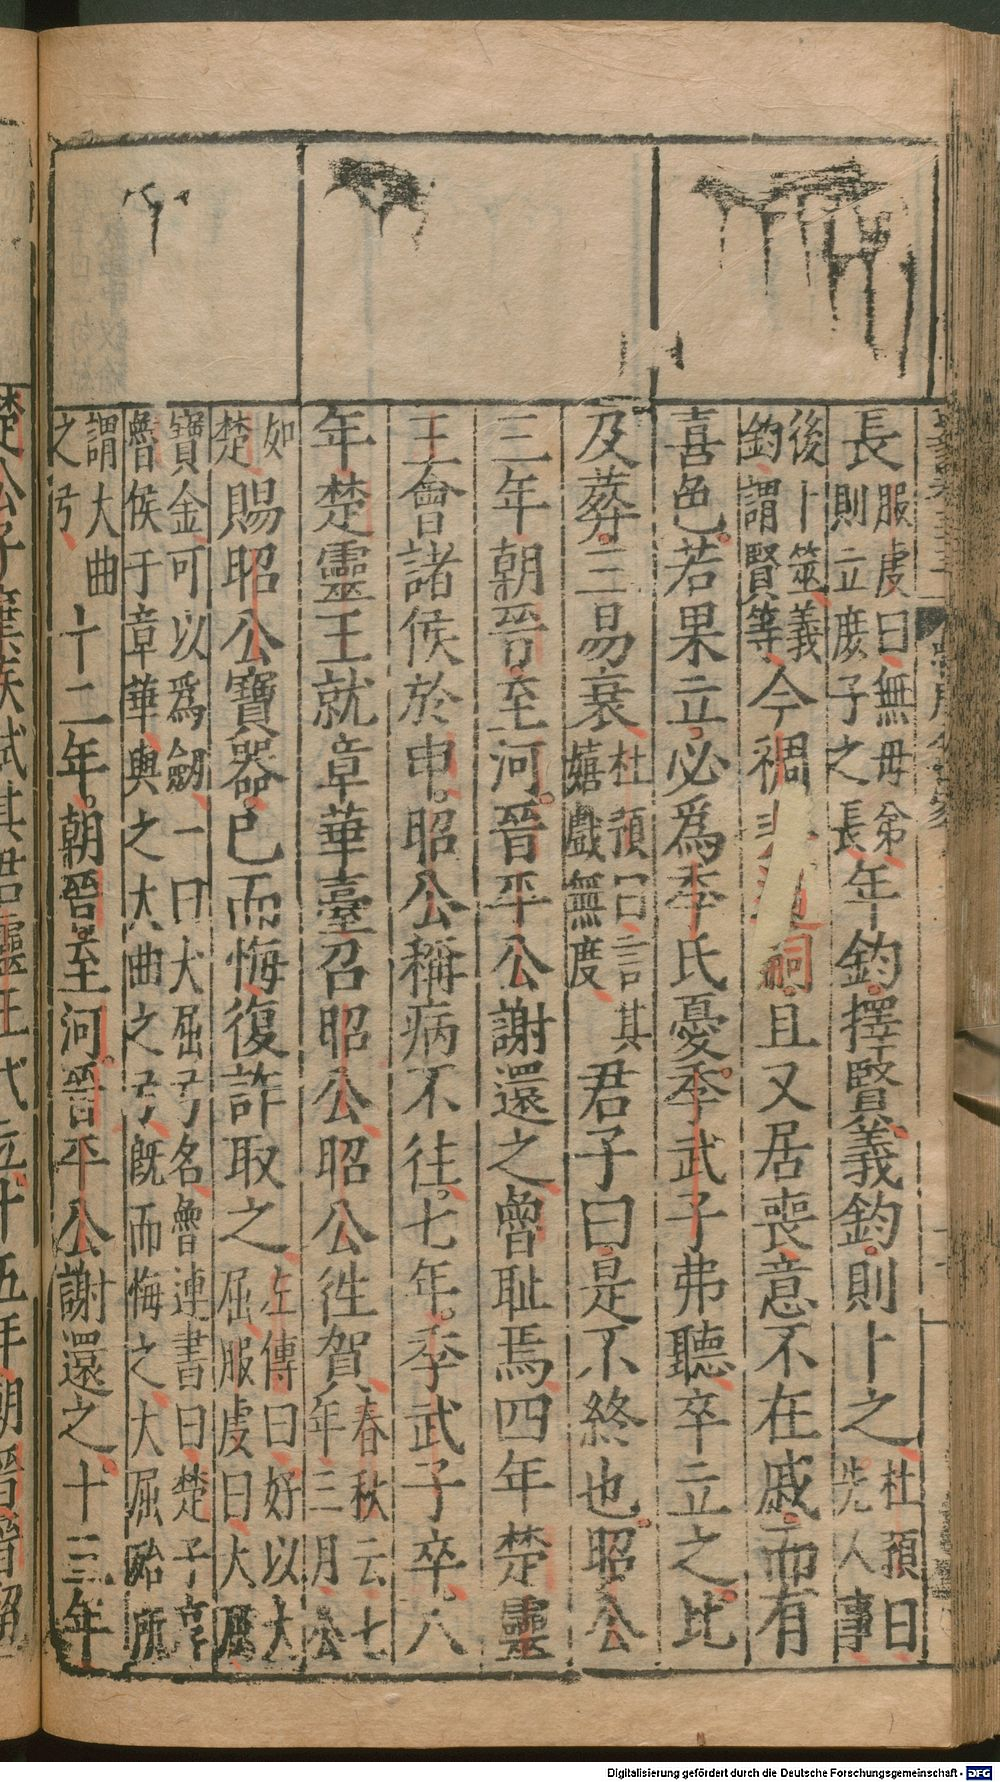 長服虔曰無毋弟則立庶子之長年鈞擇賢義鈞則卜之杜預曰先人事
後卜筮義鈞謂賢等今裯且又居喪意不在戚而有
喜色若果立必爲季氏憂季武子弗聽卒立之比
及葬三易衰杜預曰言其嬉戲無度君子曰是不終也昭公
三年朝晉至河晉平公謝還之魯耻焉四年楚靈
王會諸侯於申昭公稱病不徃七年季武子卒八
年楚靈王就章華臺召昭公昭公徃賀春秋云七年三月公
如楚賜昭公寶器已而悔復詐取之左傳曰好以大屈服虔曰大屈
寶金可以爲劒一曰大屈弓名魯連書曰楚子享
魯侯于章華與之大曲之弓旣而悔之大屈殆所
謂大曲之弓十二年朝晉至河晉平公謝還之十三年
楚公子棄疾弑其君靈王代立十五年朝晉晉昭
Digitalisierung gefördert durch die Deutsche Forschungsgemeinschaft - DFG